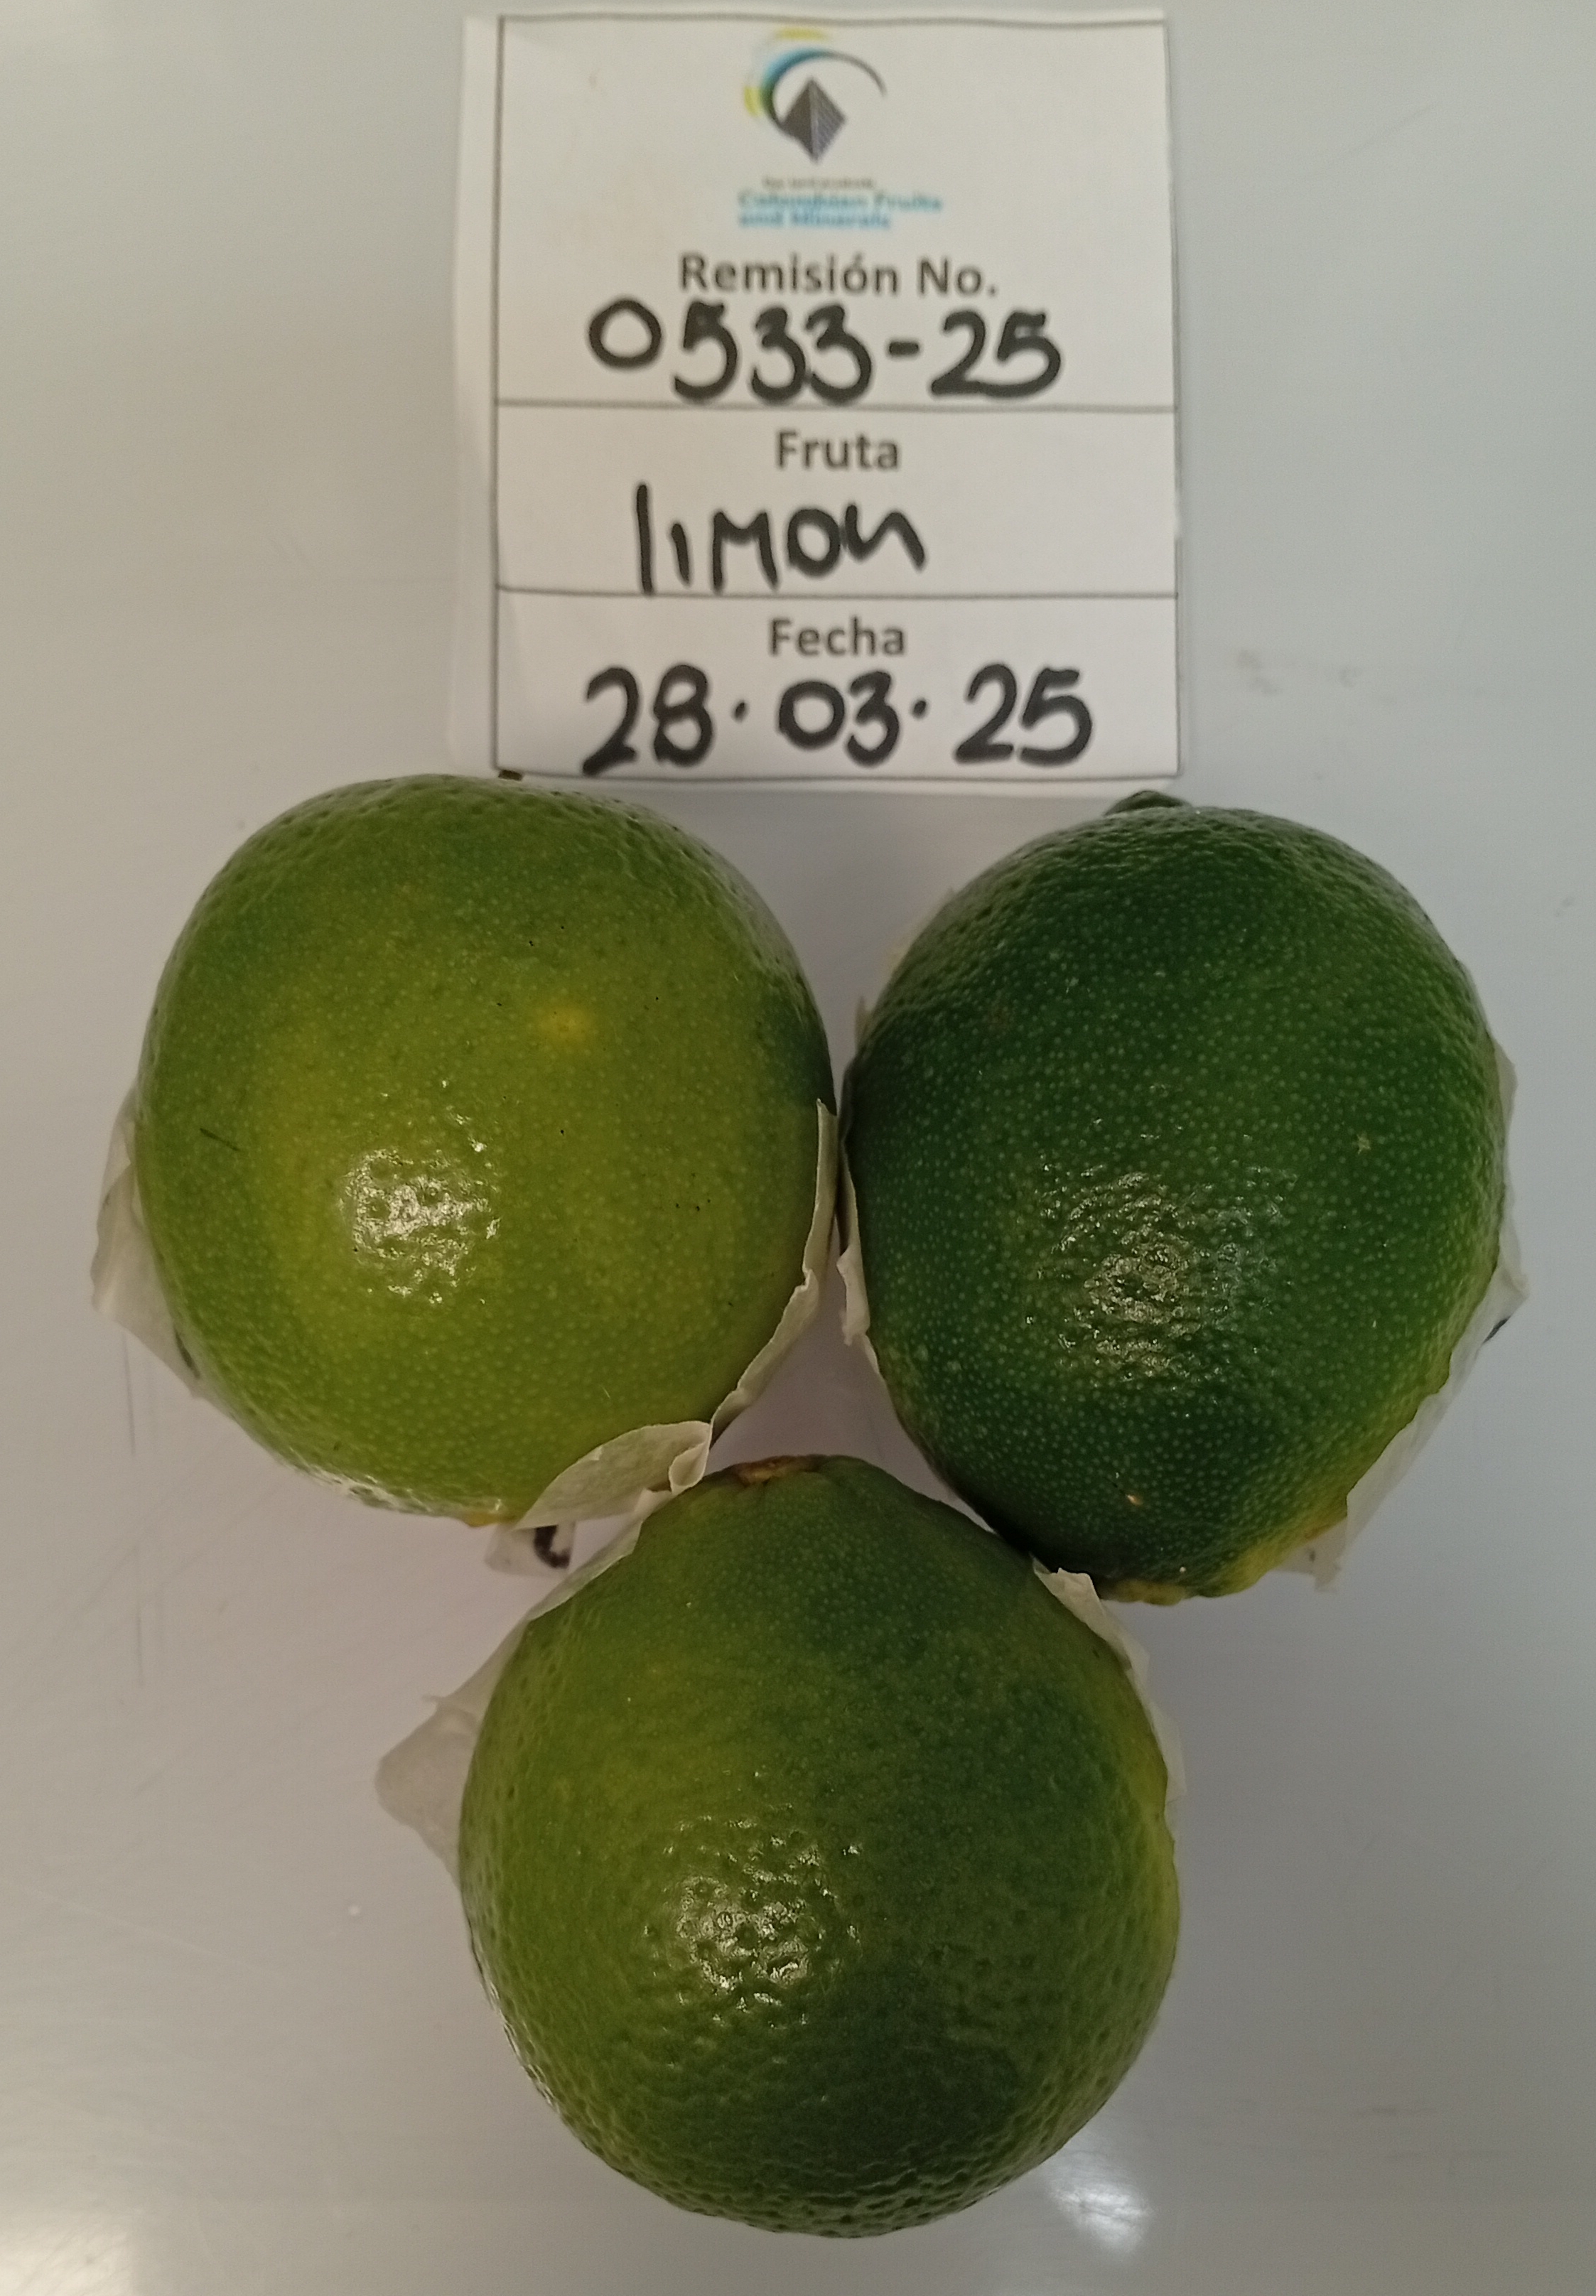 Colombian Fruits
and Minerals
Remisión No.
0533-25
Fruta
limon
Fecha
28.03.25